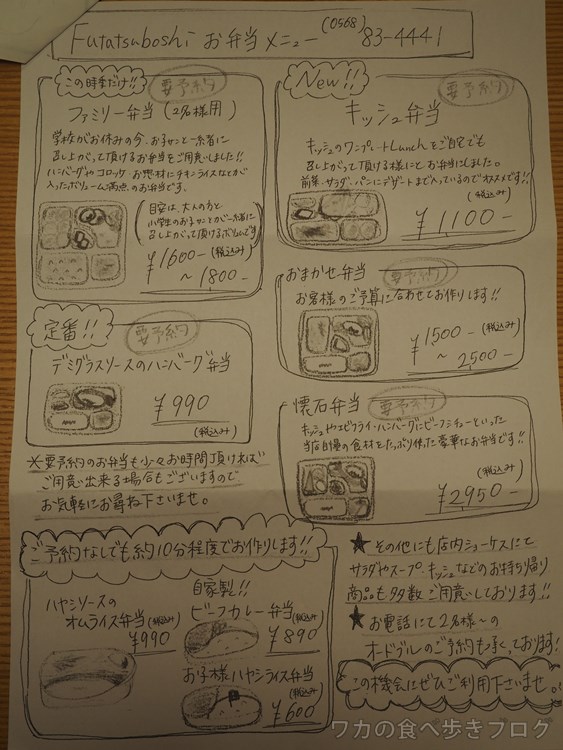 Futatsuboshi お弁当メニュー (0568) 83-4441
この時季だけ!!
要予約
ファミリー弁当(2名様用)
学校がお休みの今、お子サンと一緒に
召し上がって頂けるお弁当をご用意しました!!
ハンバーグやコロッケ・お惣材にチキンライスなどが
入ったボリューム満点のお弁当です。
目安は、大人の方と
小学生のお子サンとが一緒に
召し上がって頂けるボリュームです
¥1,600-(税込み)
~1800-
New!!
要予約
キッシュ弁当
キッシュのワンプレートLunchをご自宅でも
召し上がって頂ける様にとお弁当にしました。
前菜・サラダ・パンにデザートまで入っているのでオススメです!!
(税込み)
¥1,100-
おまかせ弁当
要予約
お客様のご予算に合わせてお作りします!!
¥1500-(税込み)
~2500-
定番!!
要予約
デミグラスソースのハンバーグ弁当
¥990
(税込み)
懐石弁当
要予約
キッシュやエビフライ・ハンバーグにビーフシチューといった
当店自慢の食材をたっぷり使った豪華なお弁当です!!
(税込み)
¥2,950-
※要予約のお弁当も少々お時間頂ければ
ご用意出来る場合もございますので
お気軽にお尋ね下さいませ。
ご予約なしでも約10分程度でお作りします!!
ハヤシソースの
オムライス弁当(税込み)
¥990
自家製!!
ビーフカレー弁当(税込み)
¥890
お子様ハヤシライス弁当
(税込み)
¥600
★その他にも店内ショーケースにて
サラダやスープ、キッシュなどのお持ち帰り
商品も多数ご用意しております!!
★お電話にて2名様~の
オードブルのご予約も承っております!
この機会にぜひご利用下さいませ。
ワカの食べ歩きブログ